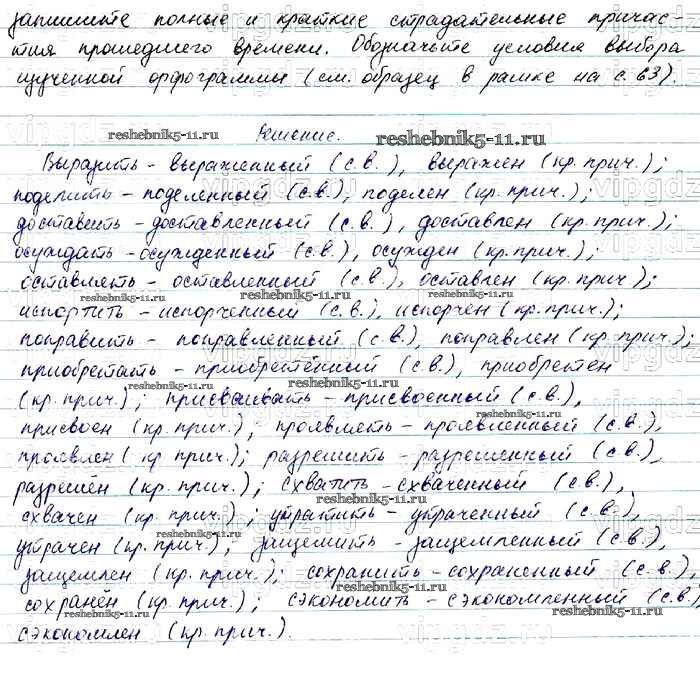 запишите полные и краткие страдательные причас-
тия прошедшего времени. Обозначьте условия выбора
изученной орфограммы (см. образец в рамке на с. 63).
reshebnik5-11.ru
Решение.
reshebnik5-11.ru
Выразить - выраженный (с.в.), выражен (кр. прич.);
поделить - поделенный (с.в.), поделен (кр. прич.);
доставить - доставленный (с.в.), доставлен (кр. прич.);
осуждать - осужденный (с.в.), осужден (кр. прич.);
оставлять - оставленный (с.в.), оставлен (кр. прич.);
reshebnik5-11.ru reshebnik5-11.ru
испортить - испорченный (с.в.), испорчен (кр. прич.);
поправить - поправленный (с.в.), поправлен (кр. прич.);
приобретать - приобретённый (с.в.), приобретен
reshebnik5-11.ru reshebnik5-11.ru
(кр. прич.); присваивать - присвоенный (с.в.),
reshebnik5-11.ru
присвоен (кр. прич.); проявлять - проявленный (с.в.),
проявлен (кр. прич.); разрешить - разрешенный (с.в.),
разрешён (кр. прич.); схватить - схваченный (с.в.),
reshebnik5-11.ru
схвачен (кр. прич.); утратить - утраченный (с.в.),
reshebnik5-11.ru
утрачен (кр. прич.); защемить - защемленный (с.в.),
защемлен (кр. прич.); сохранить - сохраненный (с.в.),
reshebnik5-11.ru
сохранён (кр. прич.); сэкономить - сэкономленный (с.в.)
reshebnik5-11.ru
сэкономлен (кр. прич.).